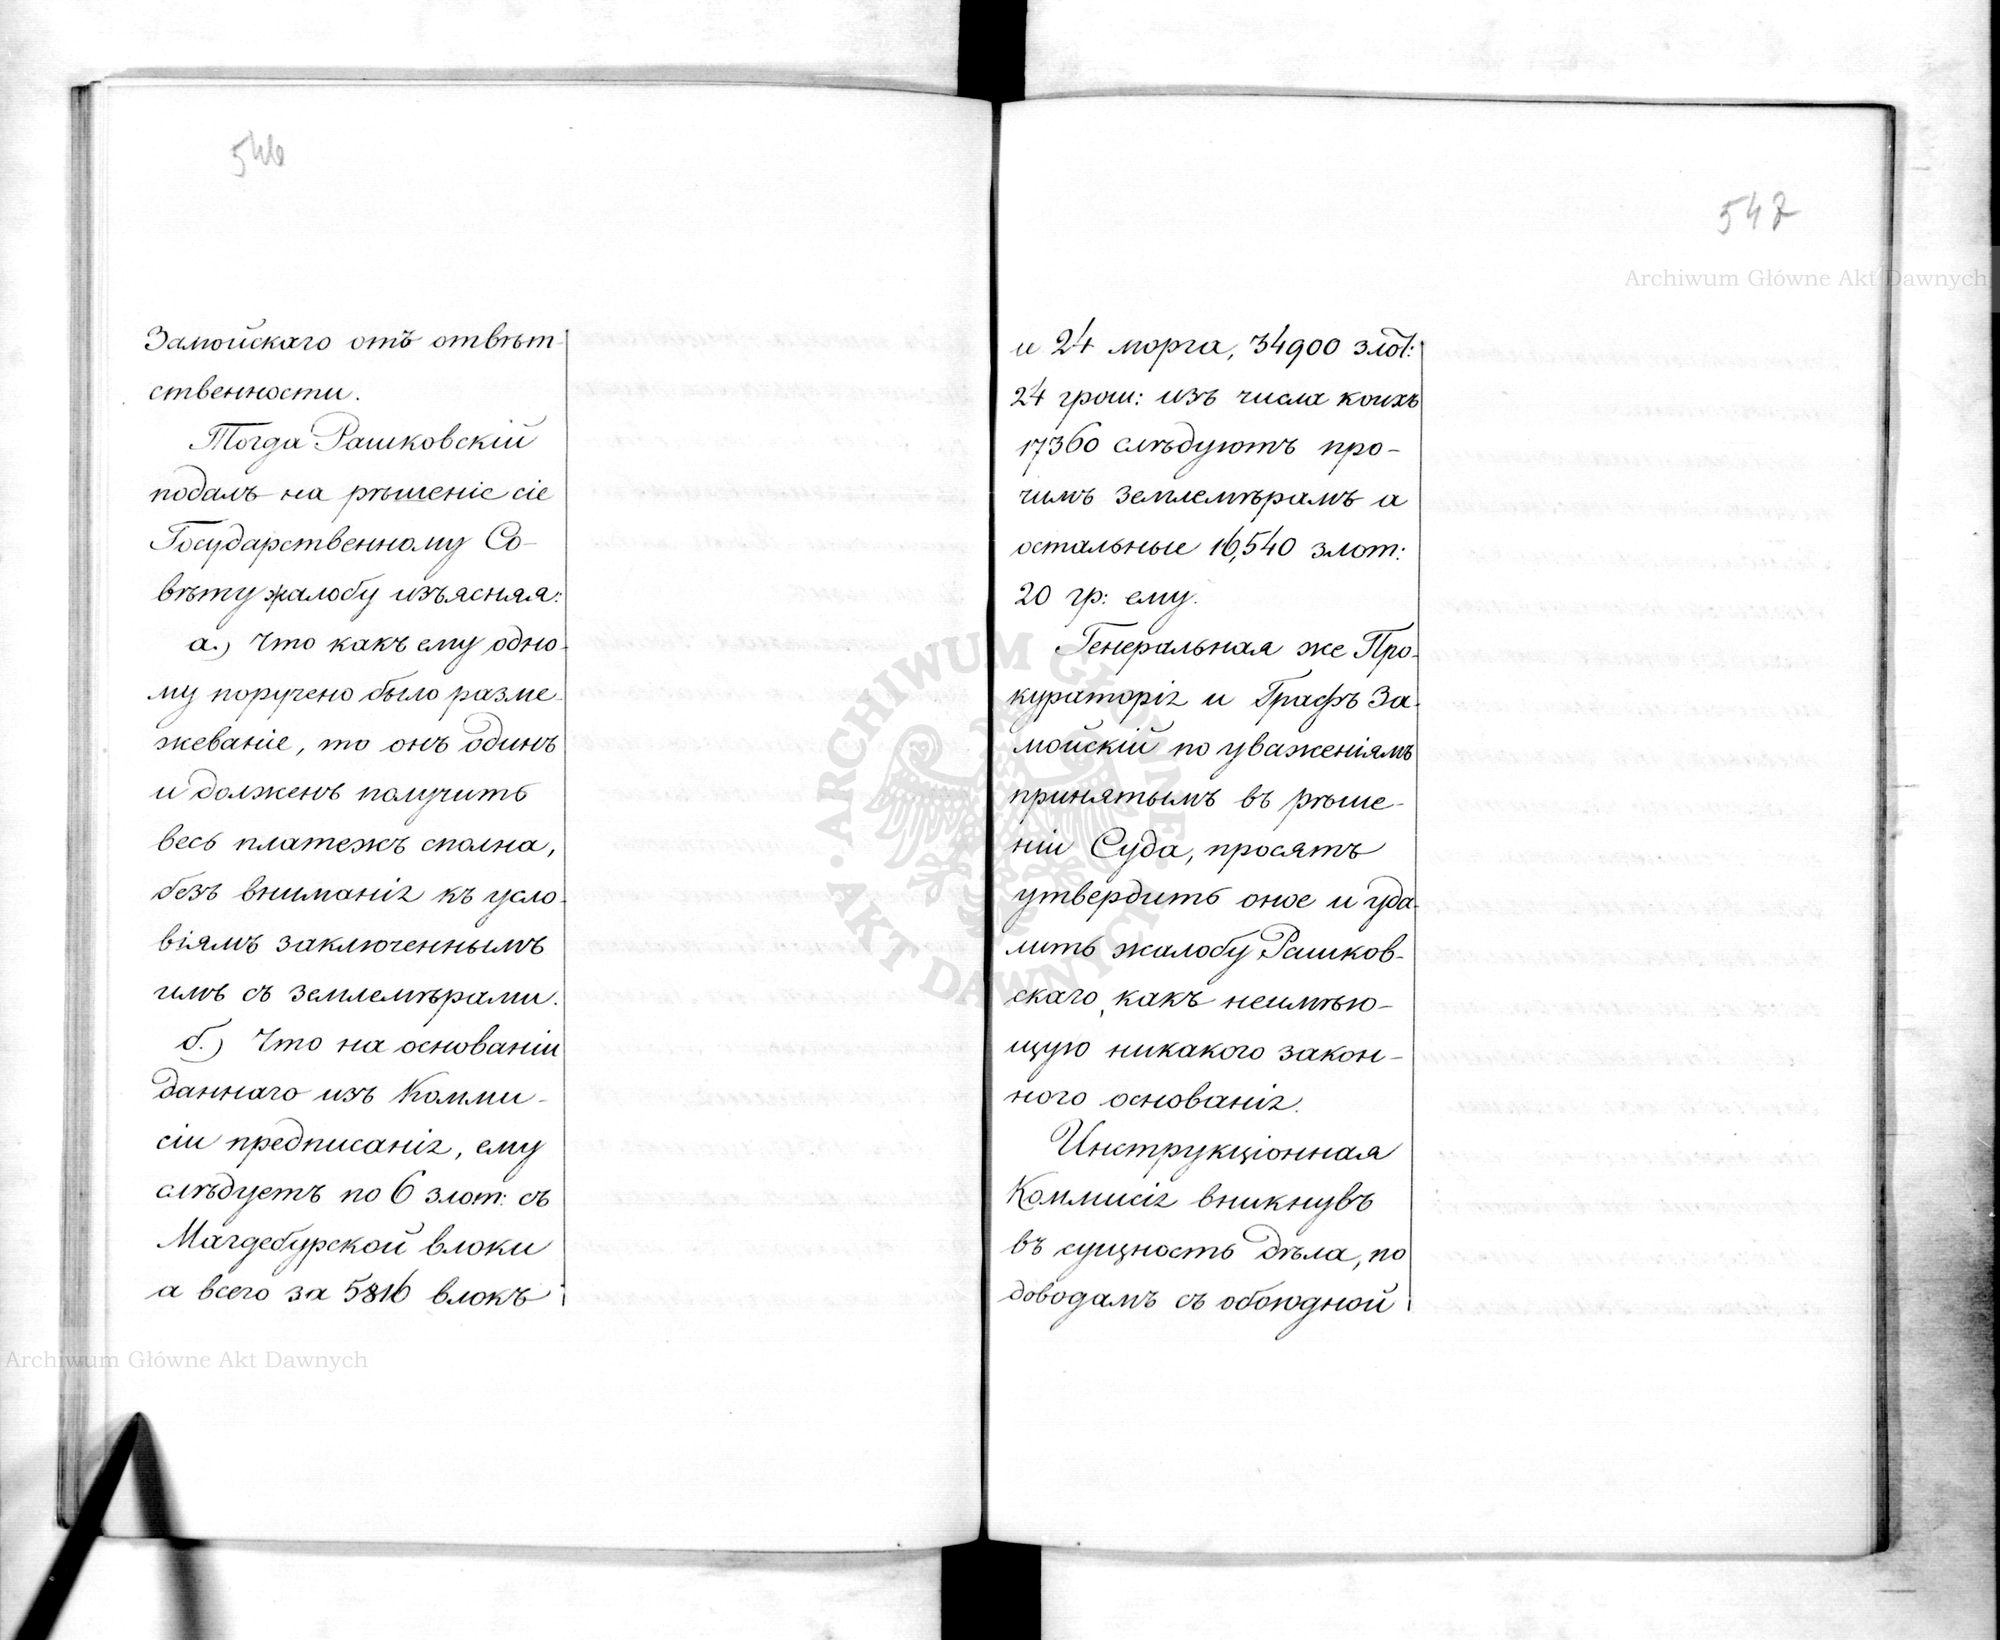 546
Замойскаго отъ отвѣт-
ственности.
Тогда Рашковскій
подалъ на рѣшеніе сіе
Государственному Со-
вѣту жалобу изъясняя:
а.) Что какъ ему одно-
му поручено было разме-
жеваніе, то онъ одинъ
и долженъ получить
весь платежъ сполна,
безъ вниманія къ усло-
віямъ заключеннымъ
имъ съ землемѣрами.
б.) Что на основаніи
даннаго изъ Комми-
сіи предписанія, ему
слѣдуетъ по 6 злот: съ
Магдебурской влоки
а всего за 5816 влокъ
547
и 24 морга, 34900 злот:
24 грош: изъ числа коихъ
17360 слѣдуютъ про-
чимъ землемѣрамъ а
остальные 16,540 злот:
20 гр: ему.
Генеральная же Про-
кураторія и Графъ За-
мойскій по уваженіямъ
принятымъ въ рѣше-
ніи Суда, просятъ
утвердить оное и уда-
лить жалобу Рашков-
скаго, какъ неимѣю-
щую никакого закон-
ного основанія.
Инструкціонная
Коммисія вникнувъ
въ сущность дѣла, по
доводамъ съ обоюдной
Archiwum Główne Akt Dawnych
ARCHIWUM GŁÓWNE AKT DAWNYCH
Archiwum Główne Akt Dawnych